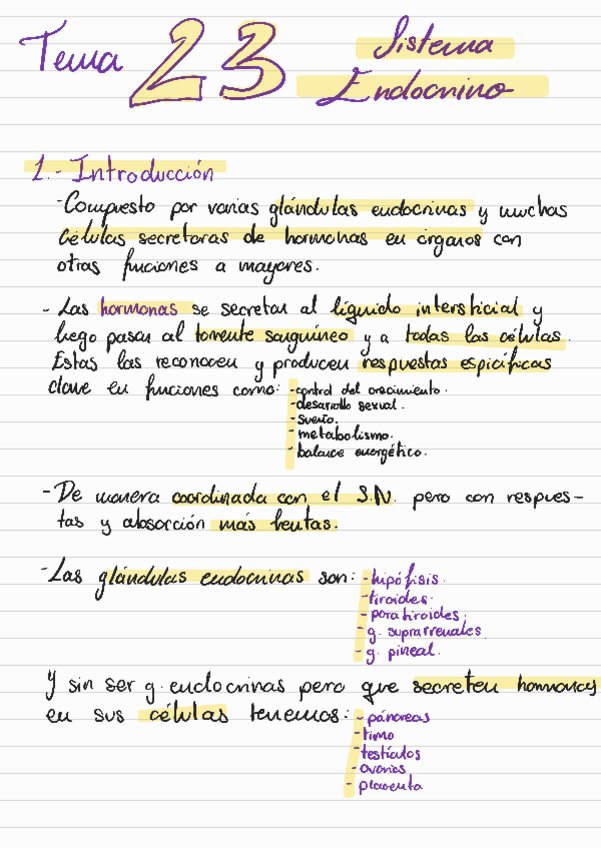 Tema 23 Sistema
Endocrino
1.- Introducción
- Compuesto por varias glándulas endocrinas y muchas
células secretoras de hormonas en órganos con
otras funciones a mayores.
- Las hormonas se secretan al líquido intersticial y
luego pasan al torrente sanguíneo y a todas las células.
Estas las reconocen y producen respuestas espicíficas
clave en funciones como:
- control del crecimiento.
- desarrollo sexual.
- sueño.
- metabolismo.
- balance energético.
- De manera coordinada con el S.N. pero con respues-
tas y absorción más lentas.
- Las glándulas endocrinas son:
- hipófisis.
- tiroides.
- paratiroides.
- g. suprarrenales
- g. pineal.
Y sin ser g. endocrinas pero que secreten hormonas
en sus células tenemos:
- páncreas
- timo
- testículos
- ovarios
- placenta